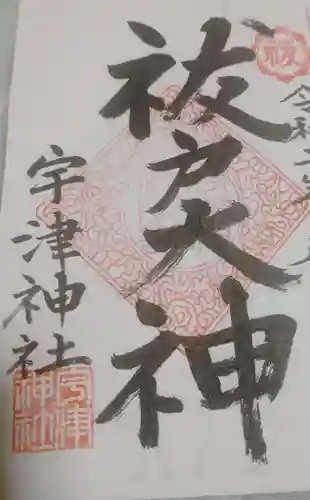 祓
令和二年
祓戸大神
宇津神社
宇津
神社